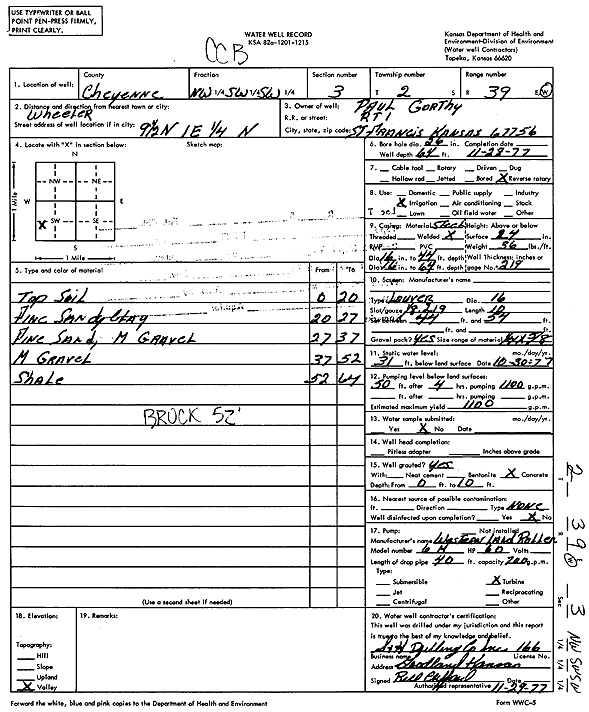 USE TYPEWRITER OR BALL
POINT PEN-PRESS FIRMLY,
PRINT CLEARLY.
WATER WELL RECORD
KSA 82a-1201-1215
Kansas Department of Health and
Environment-Division of Environment
(Water well Contractors)
Topeka, Kansas 66620
CCB
1. Location of well:
County Cheyenne
Fraction NW 1/4 SW 1/4 SW 1/4
Section number 3
Township number T 2 S
Range number R 39 E/W
2. Distance and direction from nearest town or city:
Wheeler
Street address of well location if in city: 9 1/2 N 1E 1/4 N
3. Owner of well: PAUL Gorthy
R.R. or street: RT 1
City, state, zip code: ST Francis KANSAS 67756
4. Locate with "X" in section below:
Sketch map:
N
NW NE
W E
X SW SE
S
1 Mile
1 Mile
6. Bore hole dia. in. Completion date
Well depth 64 ft. 11-28-77
7. Cable tool Rotary Driven Dug
Hollow rod Jetted Bored X Reverse rotary
8. Use: Domestic Public supply Industry
X Irrigation Air conditioning Stock
Lawn Oil field water Other
9. Casing: Material Steel Height: Above or below
Threaded Welded X Surface 24 in.
RMP PVC Weight 36 lbs./ft.
Dia. 16 in. to 44 ft. depth Wall Thickness: inches or
Dia. 16 in. to 64 ft. depth gage No. 219
5. Type and color of material From To
Top Soil 0 20
Fine Sandy Clay 20 27
Fine Sand, M Gravel 27 37
M Gravel 37 52
Shale 52 64
BRUCK 52'
(Use a second sheet if needed)
10. Screen: Manufacturer's name
Type Louver Dia. 16
Slot/gauze Length 10
ft. and 54 ft.
ft. and ft.
Gravel pack? yes Size range of material
11. Static water level: mo./day/yr.
31 ft. below land surface Date 10-30-77
12. Pumping level below land surfaces:
50 ft. after 4 hrs. pumping 1100 g.p.m.
ft. after hrs. pumping g.p.m.
Estimated maximum yield 1100 g.p.m.
13. Water sample submitted: mo./day/yr.
Yes X No Date
14. Well head completion:
Pitless adapter Inches above grade
15. Well grouted? yes
With: Neat cement Bentonite X Concrete
Depth: From 0 ft. to 10 ft.
16. Nearest source of possible contamination:
ft. Direction Type NONE
Well disinfected upon completion? Yes X No
17. Pump: Not installed
Manufacturer's name Western Land Roller
Model number 6 M HP 60 Volts
Length of drop pipe 40 ft. capacity g.p.m.
Type:
Submersible X Turbine
Jet Reciprocating
Centrifugal Other
18. Elevation:
Topography:
Hill
Slope
Upland
X Valley
19. Remarks:
20. Water well contractor's certification:
This well was drilled under my jurisdiction and this report
is true to the best of my knowledge and belief.
Drilling Co Inc. 166
Business name License No.
Address Goodland Kansas
Signed
Authorized representative 11-29-77
T 2
39 W
Sec 3
NW SW SW
1/4 1/4 1/4
Forward the white, blue and pink copies to the Department of Health and Environment
Form WWC-5